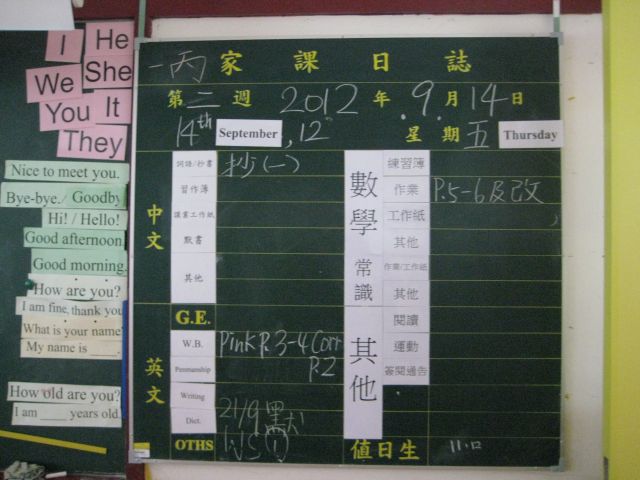 I
He
We
She
You
It
They
Nice to meet you.
Bye-bye./ Goodby
Hi! / Hello!
Good afternoon.
Good morning.
How are you?
I am fine, thank you
What is your name
My name is ____.
How old are you?
I am ____ years old
一丙 家課日誌
第二週 2012年 9月14日
14th September, 12 星期五 Thursday
中文
詞語/抄書 抄(一)
習作簿
默書
其他
英文
G.E.
W.B. Pink P.3-4 Corr
Penmanship P.2
Writing
Dict. 21/9
OTHS W.S(1)
數學
練習簿
作業 P.5-6及改
工作紙
其他
常識
作業/工作紙
其他
其他
閱讀
運動
簽閱通告
值日生